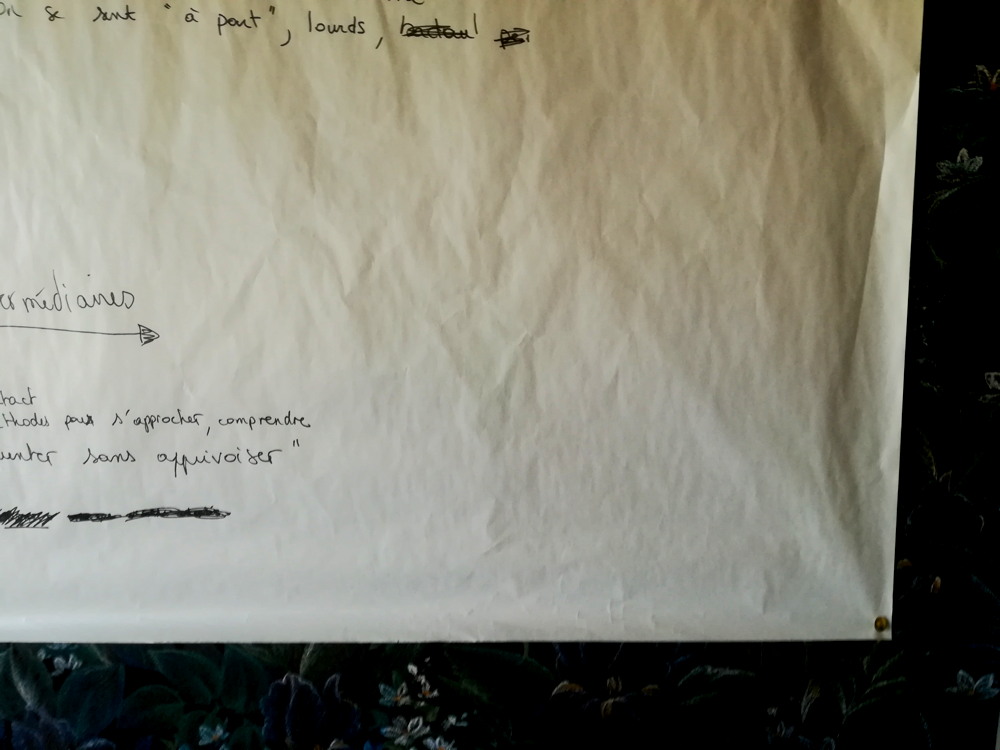 On se sent "à part", lourds,
ermédiaires
tact
thodes pour s'approcher, comprendre
uenter sans apprivoiser"